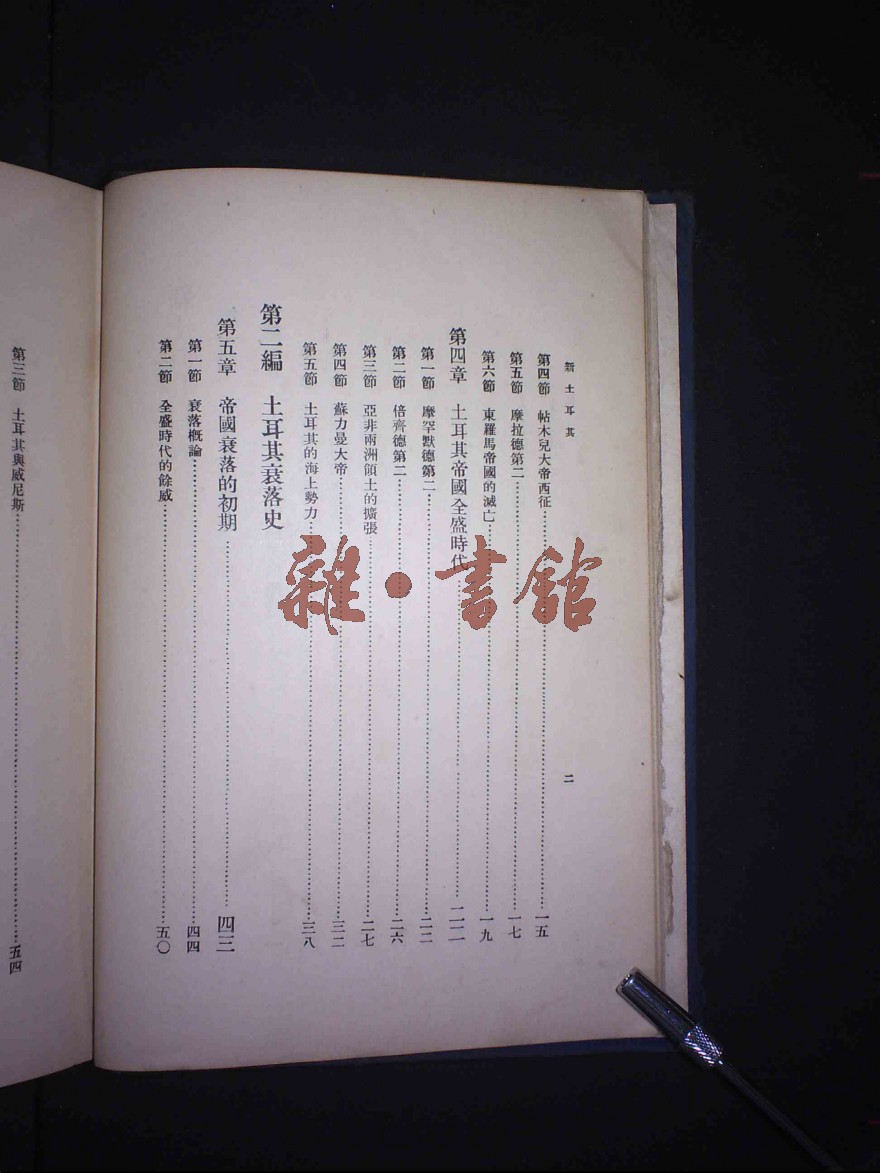 新土耳其
二
第四節 帖木兒大帝西征 一五
第五節 摩拉德第二 一七
第六節 東羅馬帝國的滅亡 一九
第四章 土耳其帝國全盛時代 二二
第一節 摩罕默德第二 二二
第二節 倍齊德第二 二六
第三節 亞非兩洲領土的擴張 二七
第四節 蘇力曼大帝 三二
第五節 土耳其的海上勢力 三八
第二編 土耳其衰落史
第五章 帝國衰落的初期 四三
第一節 衰落概論 四四
第二節 全盛時代的餘威 五〇
第三節 土耳其與威尼斯 五四
雜·書館